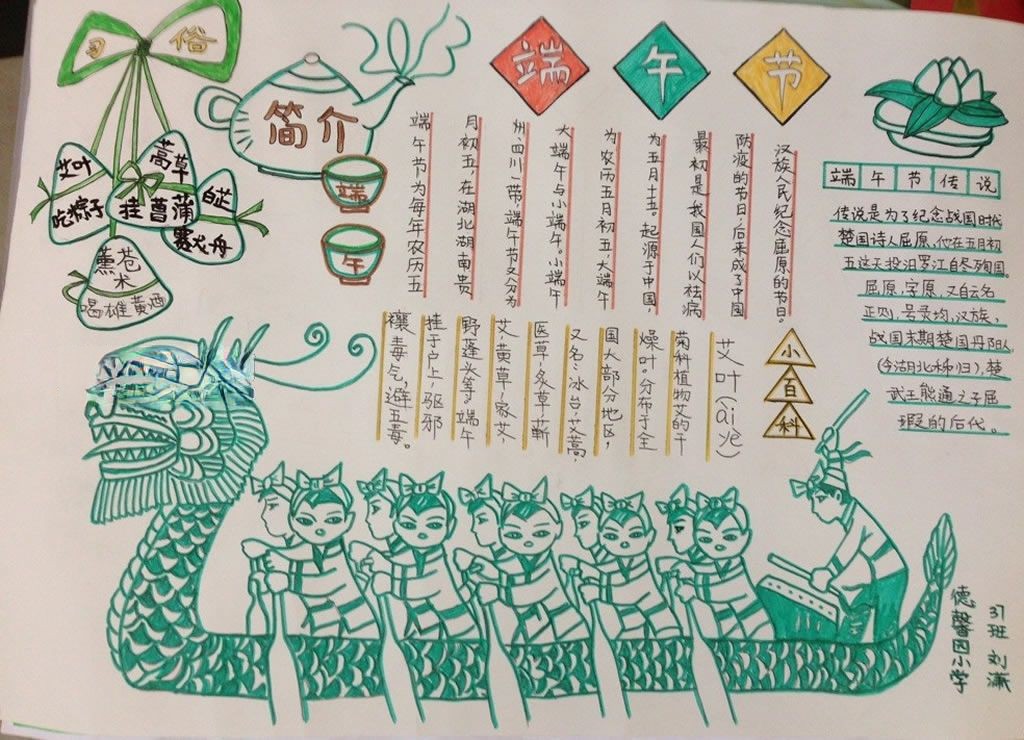 端午节
习俗
艾叶
吃粽子
蒿草
挂菖蒲
白芷
赛龙舟
苍术
喝雄黄酒
简介
端
午
端午节为每年农历五
月初五,在湖北湖南贵
州四川一带,端午节又分为
大端午与小端午。小端午
为农历五月初五,大端午
为五月十五。起源于中国,
最初是我国人们以祛病
防疫的节日,后来成了中国
汉族人民纪念屈原的节日。
端午节传说
传说是为了纪念战国时代
楚国诗人屈原,他在五月初
五这天投汨罗江自尽殉国。
屈原,字原,又自云名
正则,号灵均,汉族,
战国末期楚国丹阳人,
(今湖北秭归),楚
武王熊通之子屈
瑕的后代。
小百科
艾叶(ài)
菊科植物艾的干
燥叶。分布于全
国大部分地区,
又名:冰台,艾蒿,
医草,灸草,蕲
艾,黄草,家艾,
野蓬头等。端午
挂于户上,驱邪
禳毒气,避五毒。
37班 刘潇
德馨园小学